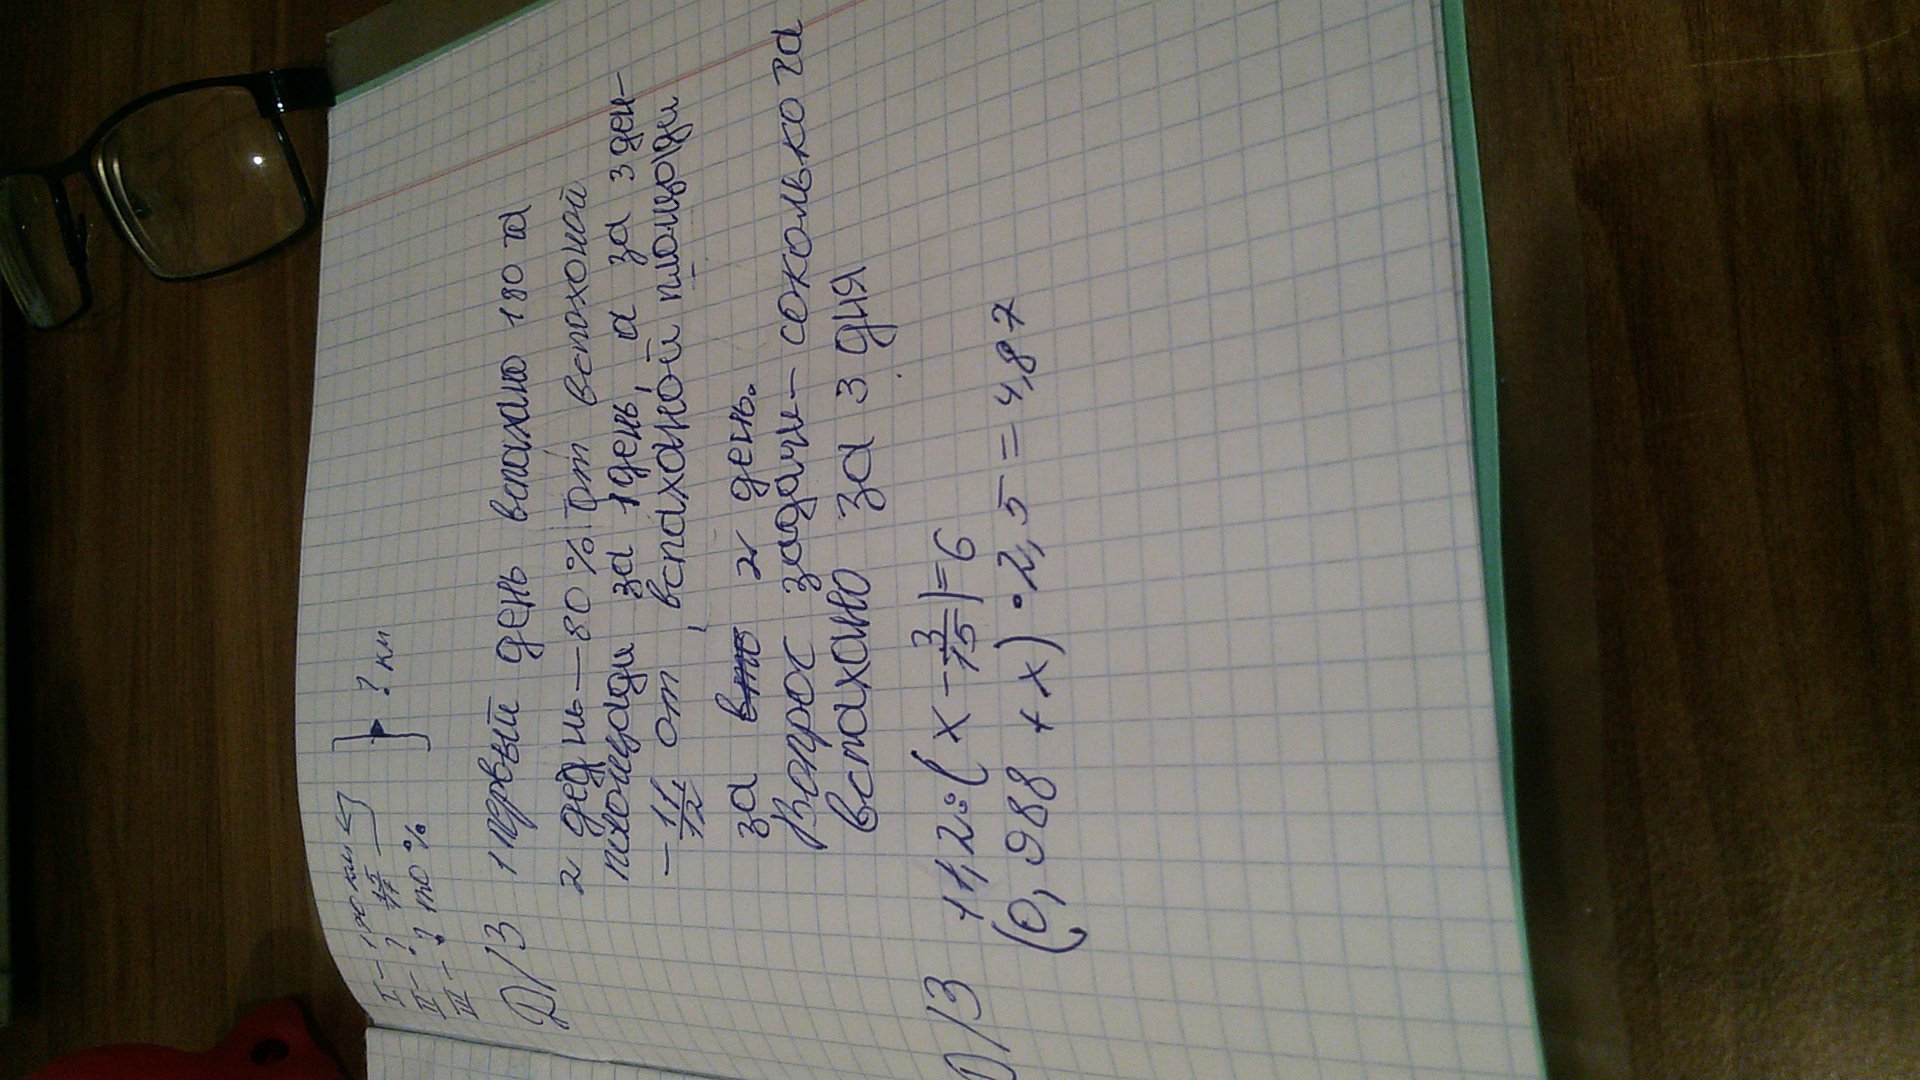 I — 190 км
II — ? 15/17
III — ? 170%
} ? км
Д/З 1 первый день вспахано 180 га
2 день — 80% от вспоханой
площади за 1 день, а за 3 ден-
— 11/12 от вспаханой площади
за 2 день.
Вопрос задачи — сколько га
вспахано за 3 дня
Д/З 11,2 : (x - 3/15) = 6
(0,988 + x) · 2,5 = 4,87